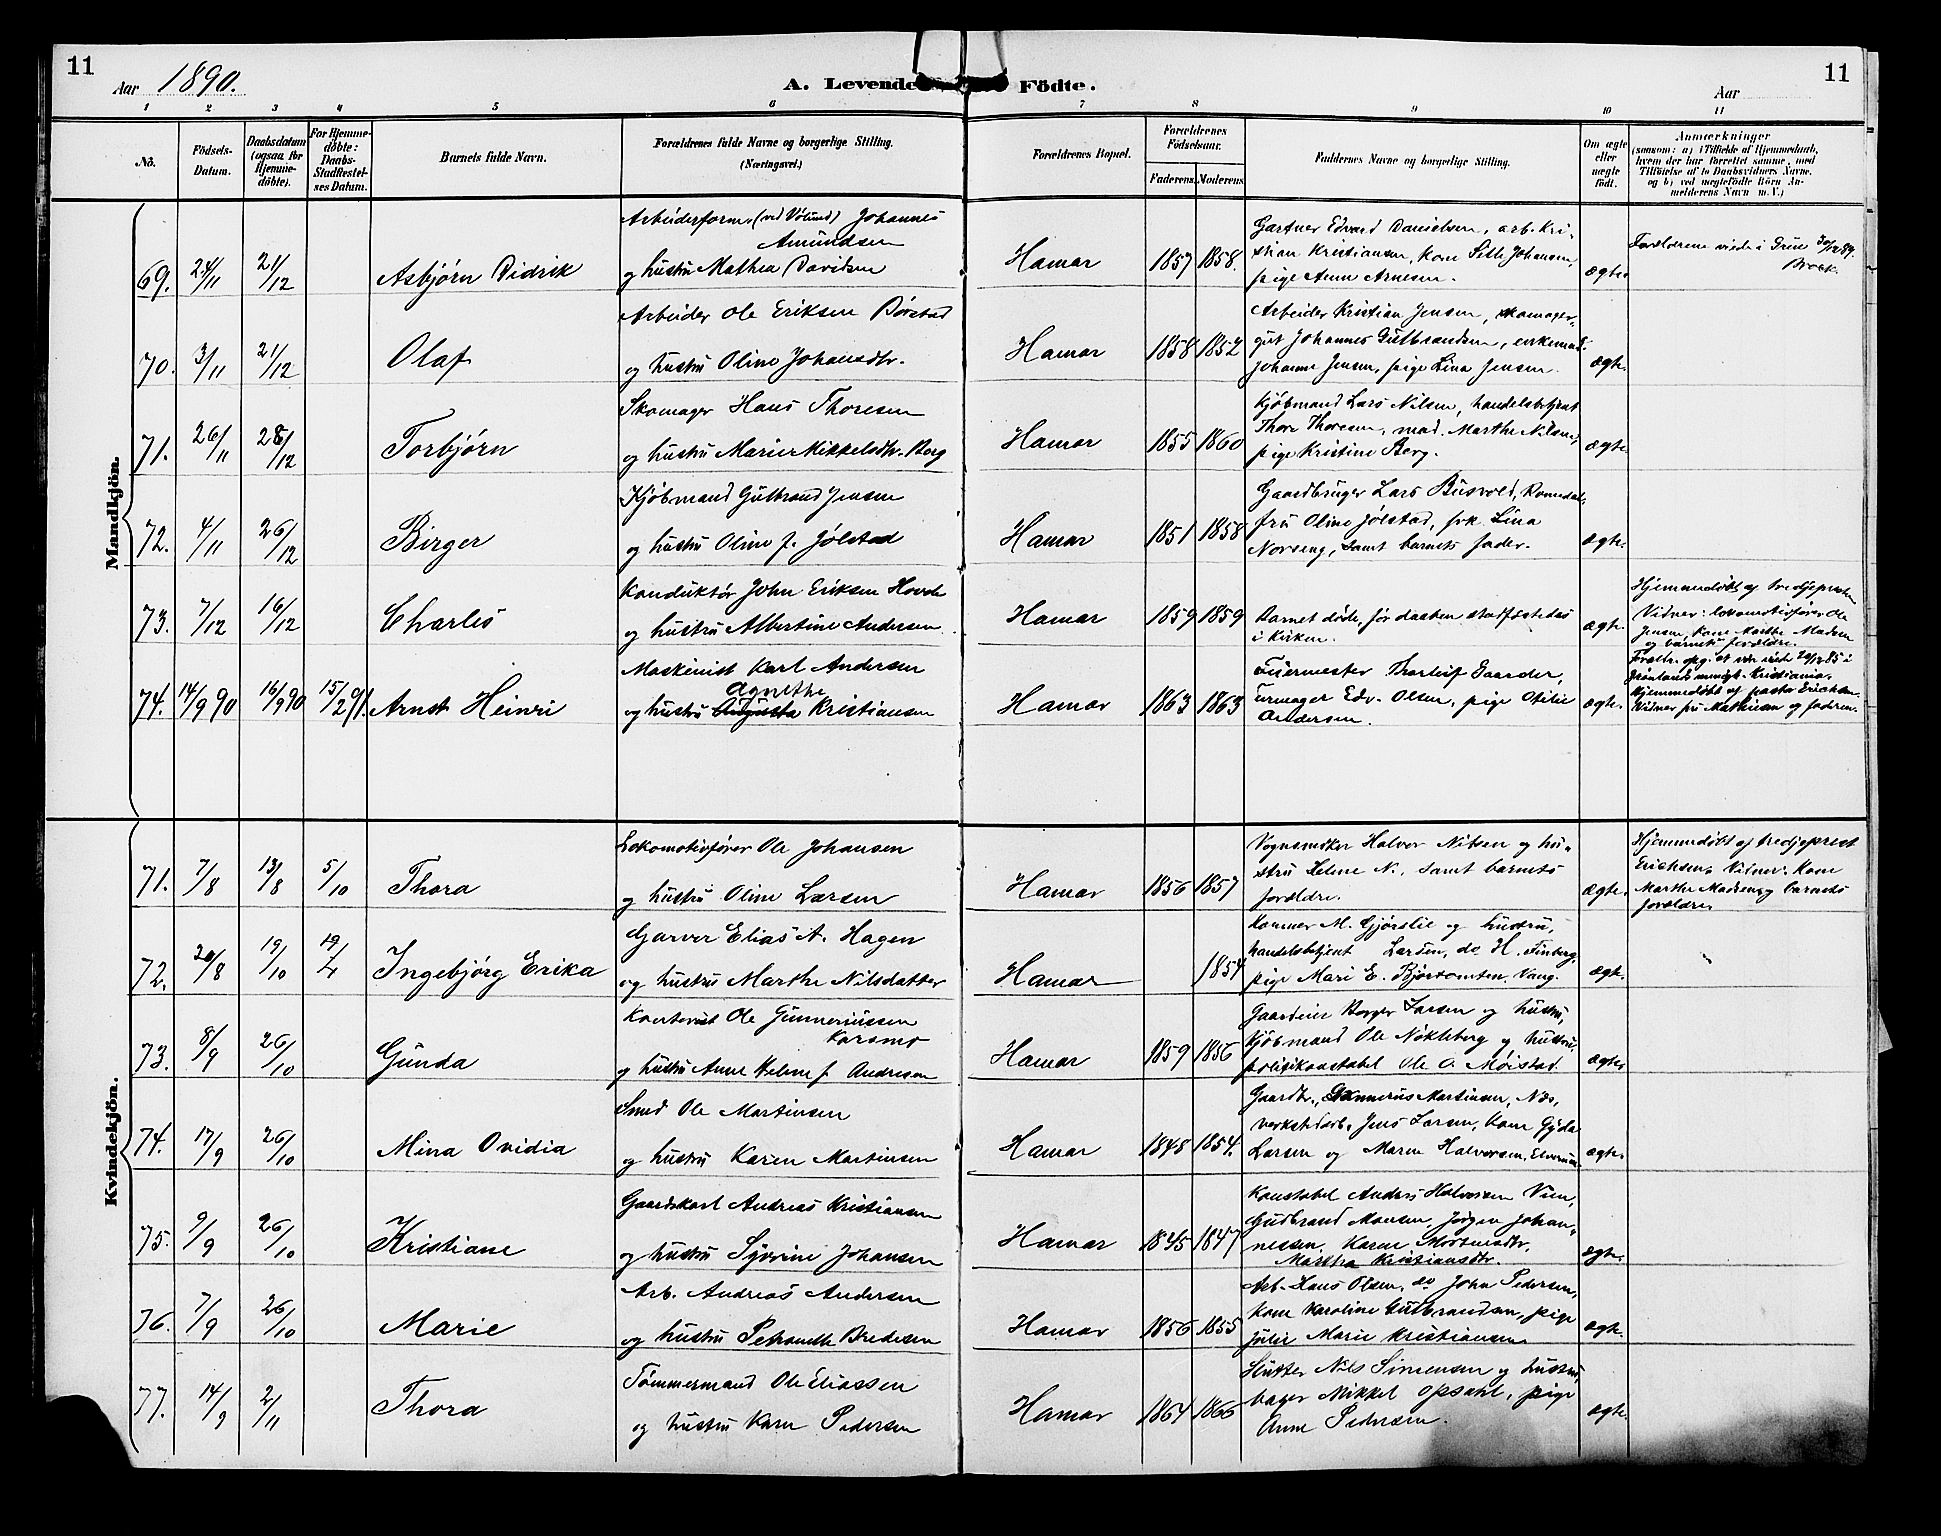 11
Aar 1890.
A. Levende Födte.
Aar
11
1 2 3 4 5 6 7 8 9 10 11
No.
Födsels-Datum.
Daabsdatum (ogsaa for Hjemme-döbte).
For Hjemme-döbte: Daabs-Stadfæstel-ses Datum.
Barnets fulde Navn.
Forældrenes fulde Navne og borgerlige Stilling. (Næringsvei.)
Forældrenes Bopæl.
Forældrenes Födselsaar.
Faderens. Moderens.
Faddernes Navne og borgerlige Stilling.
Om ægte eller uægte födt.
Anmærkninger
(saasom: a) i Tilfælde af Hjemmedaab,
hvem der har forrettet samme, med
Tilföielse af to Daabsvidners Navne,
og b) ved uægtefödte Börn An-
melderens Navn m. V.)
Mandkjön.
Arbeiderform. (ved Vølund) Johannes
Amundsen
69. 24/11 21/12 Asbjørn Didrik
og hustru Mathea Davidsen
Hamar 1857 1858.
Gartner Edvard Danielsen, arb. Kri-
stian Kristiansen, kone Johansen,
pige Anna Arnesen.
ægte.
Forældrene viede i Grue 30/12 89.
Arbeider Ole Eriksen Børstad
70. 3/11 21/12 Olaf
og hustru Oline Johansdtr.
Hamar 1858 1852
Arbeider Kristian Jensen, skomager-
gut Johannes Gulbrandsen, enkemad.
Johanne Jensen, pige Lina Jensen.
ægte.
Skomager Hans Thoresen
71. 26/11 28/12 Torbjørn
og hustru Marie Mikkelsdtr. Berg
Hamar 1855 1860
Kjøbmand Lars Nilsen, handelsbetjent
Thore Thoresen, mad. Marthe Nilsen,
pige Kristine Berg.
ægte.
Kjøbmand Gulbrand Jensen
72. 4/11 26/12 Birger
og hustru Oline f. Jølstad
Hamar 1851 1858
Gaardbruger Lars Busvold, Romedal,
fru Oline Jølstad, frk. Lina
Norseng, samt barnets fader.
ægte.
Konduktør John Eriksen Hovde
73. 7/12 16/12 Charles
og hustru Albertine Andersen
Hamar 1859 1859
Barnet døde, før daaben stadfæstedes
i kirken.
ægte
Hjemmedøbt af tredjepresten
Vidner: lokomotivfører Ole
Jensen, kone Marthe Madsen
og barnets forældre.
Maskinist Karl Andersen
74. 14/9 90 16/9 90 15/2 91. Arnst Heinri
Agnethe
og hustru Augusta Kristiansen
Hamar 1863 1863
Fyermester Thorleif Gaarder,
Edv. Olsen, pige Otilie
Andersen.
ægte.
Forældr. opg. at være viede 20/12 85 i
Grønlands menigh. Kristiania.
Hjemmedøbt af pastor Erichsen.
Vidner fru Mathisen og faderen.
Kvindekjön.
Lokomotivfører Ole Johansen
71. 7/8 13/8 5/10 Thora
og hustru Oline Larsen
Hamar 1856 1857
Vognsmører Halvor Nilsen og hu-
stru Helene N., samt barnets
forældre.
ægte.
Hjemmedøbt af tredjeprest
Erichsen, Vidner: Kone
Marthe Madsen og barnets
forældre
Garver Elias A. Hagen
72. 20/8 19/10 Ingebjørg Erika
og hustru Marthe Nilsdatter
Hamar 1854
M. Gjørslie og hustru,
handelsbetjent Larsen, do H. Finberg,
pige Mari E. Vang.
ægt.
Kontorist Ole Gunneriussen
Korsmo
73. 8/9 26/10 Gunda
og hustru Anne Helene f. Andresen
Hamar 1859 1856
Gaardeier Borger Larsen og hustru,
kjøbmand Ole Nökleberg og hustru,
politikonstabel Ole O. Møistad
ægte
Smed Ole Martinsen
74. 17/9 26/10 Mina Ovidia
og hustru Karen Martinsen
Hamar 1848 1854.
Gaardbr. Gunnerius Martinsen, Næs,
verkstedarb. Jens Larsen, kone Gyda
Larsen og Maren Halvorsen, Elverum
ægte.
Gaardskarl Andreas Kristiansen
75. 9/9 26/10 Kristiane
og hustru Syverine Johansen
Hamar 1845 1847
Konstabel Anders Halvorsen Vien,
Gudbrand Monsen, Jørgen Johan-
nessen, Karen Mortensdtr,
Martha Kristiansdtr.
ægte.
Arb. Andreas Andersen
76. 7/9 26/10 Marie
og hustru Petronelle Bredesen
Hamar 1856 1855
Arb. Hans Olsen, do John Pedersen,
kone Karoline Gulbrandsen, pige
Julie Marie Kristiansen
ægte.
Tömmermand Ole Eliassen
77. 14/9 2/11 Thora
og hustru Karen Pedersen
Hamar 1864 1866
Nils Simensen og hustru
bager Mikkel Opsahl, pige
Anne Pedersen.
ægte.